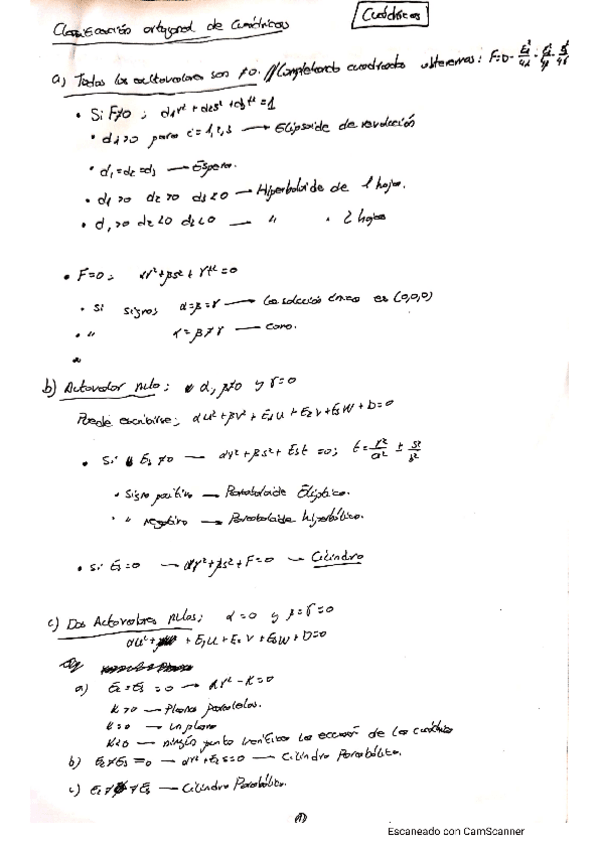 Clasificación ortogonal de Cuádricas
Cuádricas
a) Todos los autovalores son ≠0. // Completando cuadrados obtenemos: F=D - E₁²/4α - E₂²/4β - E₃²/4γ
• Si F≠0 ; d₁r²+d₂s²+d₃t²=1
• di>0 para i=1,2,3 → Elipsoide de revolución
• d₁=d₂=d₃ → Esfera.
• d₁>0 d₂>0 d₃<0 → Hiperboloide de 1 hojas.
• d₁>0 d₂<0 d₃<0 — " • 2 hojas
• F=0; αr²+βs²+γt²=0
• Si signos α=β=γ → La solución única es (0,0,0)
• " α=β≠γ — Cono.
b) Autovalor nulo; α, β≠0 y γ=0
Puede escribirse; αu²+βv²+E₁u+E₂v+E₃w+D=0
• Si E₃≠0 — αr²+βs²+E₃t=0; t=r²/a² ± s²/b²
• Signo positivo → Paraboloide Elíptico.
• " negativo → Paraboloide hiperbólico.
• si E₃=0 → αr²+βs²+F=0 → Cilindro
c) Dos Autovalores nulos; α=0 y β=γ=0
αu²+ + E₁u+E₂v+E₃w+D=0
a) E₂=E₃=0 → αr²-K=0
K>0 — Planos paralelos.
K=0 → Un plano
K<0 — ningún punto verifica la ecuación de la cuádrica
b) E₂≠E₃=0 → αr²+E₂s=0 → Cilindro Parabólico.
c) E₂≠ ≠E₃ — Cilindro Parabólico.
(1)
Escaneado con CamScanner